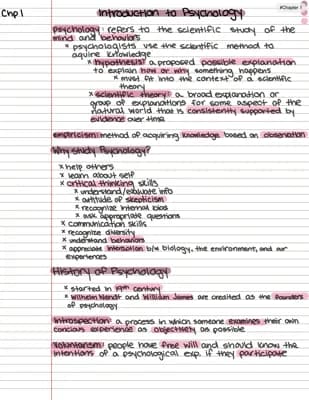 Chp 1
Introduction to Psychology
#Chapter 1
psychology: refers to the scientific study of the
mind and behaviors
* psychologists use the scientific method to
aquire knowledge
* hypothesis: a proposed possible explanation
to explain how or why something happens
* must fit into the context of a scientific
theory
* scientific theory: a broad explanation or
group of explanations for some aspect of the
natural world that is consistently supported by
evidence over time
empiricism: method of acquiring knowledge based on observation
Why study Psychology?
* help others
* learn about self
* critical thinking skills
* understand/evaluate info
* attitude of skepticism
* recognize internal bias
* ask appropriate questions
* communication skills
* recognize diversity
* understand behaviors
* appreciate interaction b/w biology, the environment, and our
experiences
History of Psychology
* started in 19th century
* Wilhelm Wendt and William James are credited as the founders
of psychology
Introspection: a process in which someone examines their own
concious experience as objectively as possible
Voluntarism: people have free will and should know the
intentions of a psychological exp. if they participate